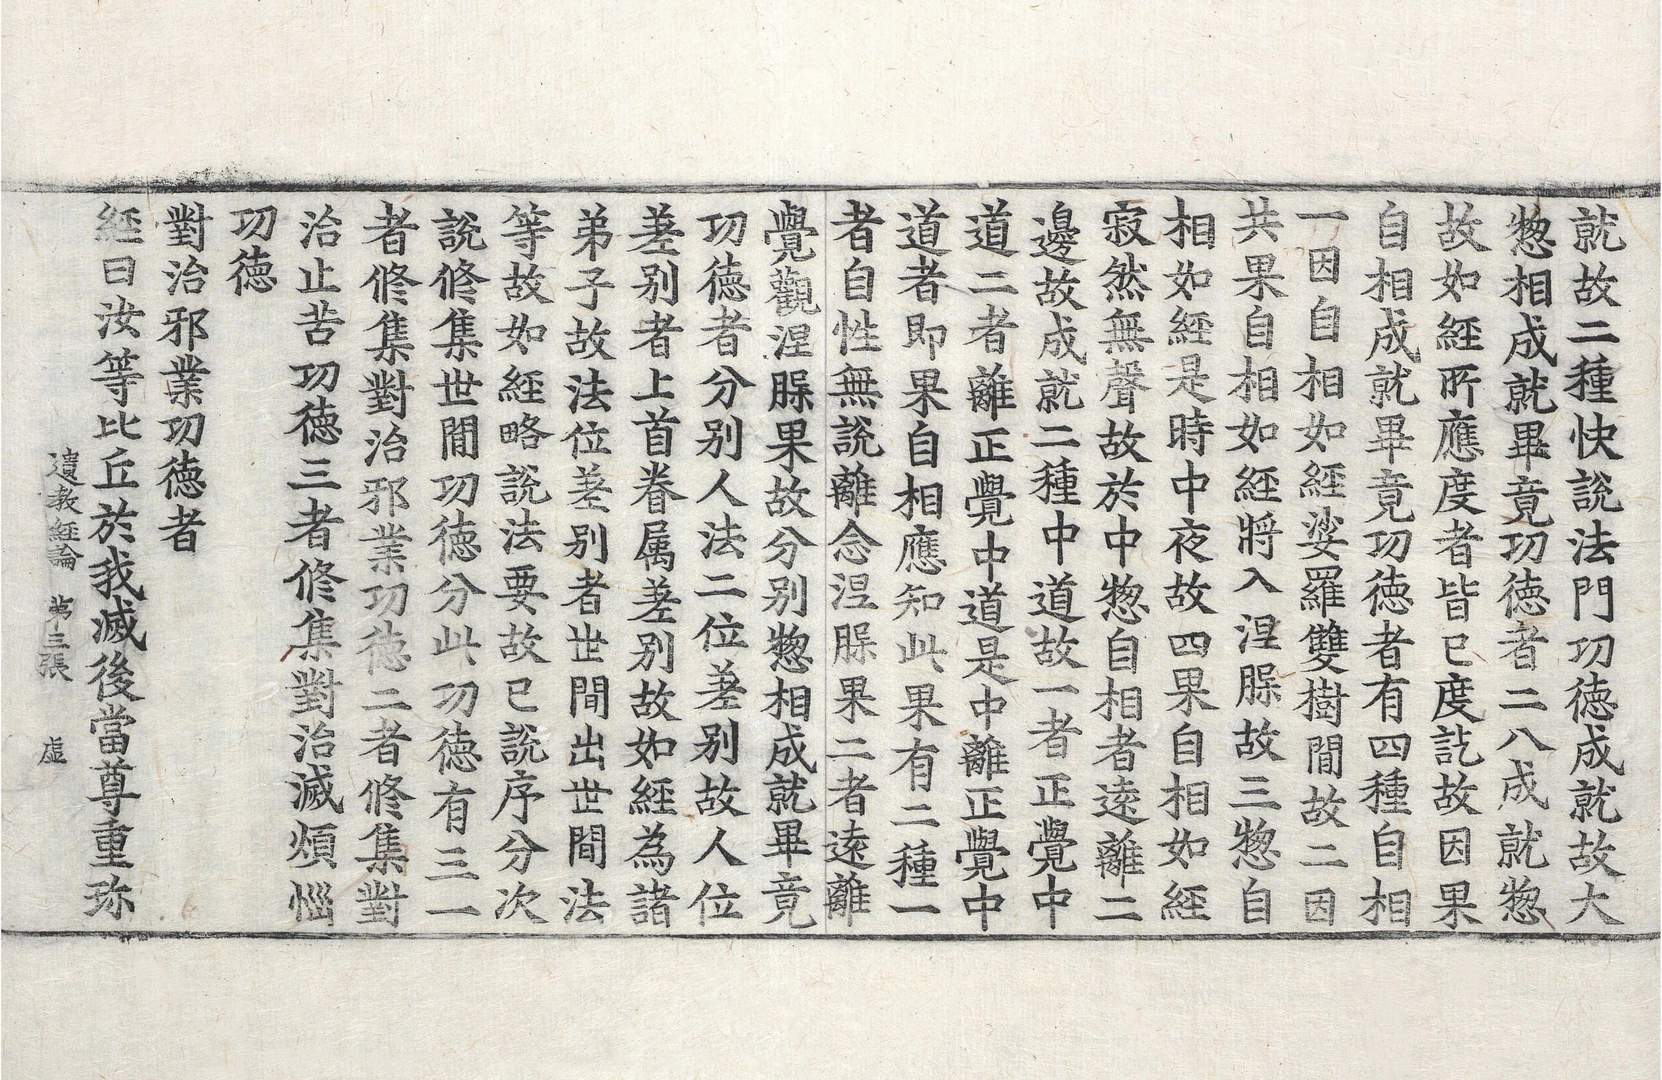 就故二種快說法門功徳成就故大
惣相成就畢竟功徳者二八成就惣
故如經所應度者皆已度訖故因果
自相成就畢竟功徳者有四種自相
一因自相如經娑羅雙樹間故二因
共果自相如經將入涅槃故三惣自
相如經是時中夜故四果自相如經
寂然無聲故於中惣自相者遠離二
邊故成就二種中道故一者正覺中
道二者離正覺中道是中離正覺中
道者即果自相應知此果有二種一
者自性無說離念涅槃果二者遠離
覺觀涅槃果故分別惣相成就畢竟
功徳者分別人法二位差別故人位
差別者上首眷属差別故如經為諸
弟子故法位差別者世間出世間法
等故如經略說法要故已說序分次
說修集世間功徳分此功徳有三一
者修集對治邪業功徳二者修集對
治止苦功徳三者修集對治滅煩惱
功徳
對治邪業功徳者
經曰汝等比丘於我滅後當尊重弥
遺教經論 第三張 虛